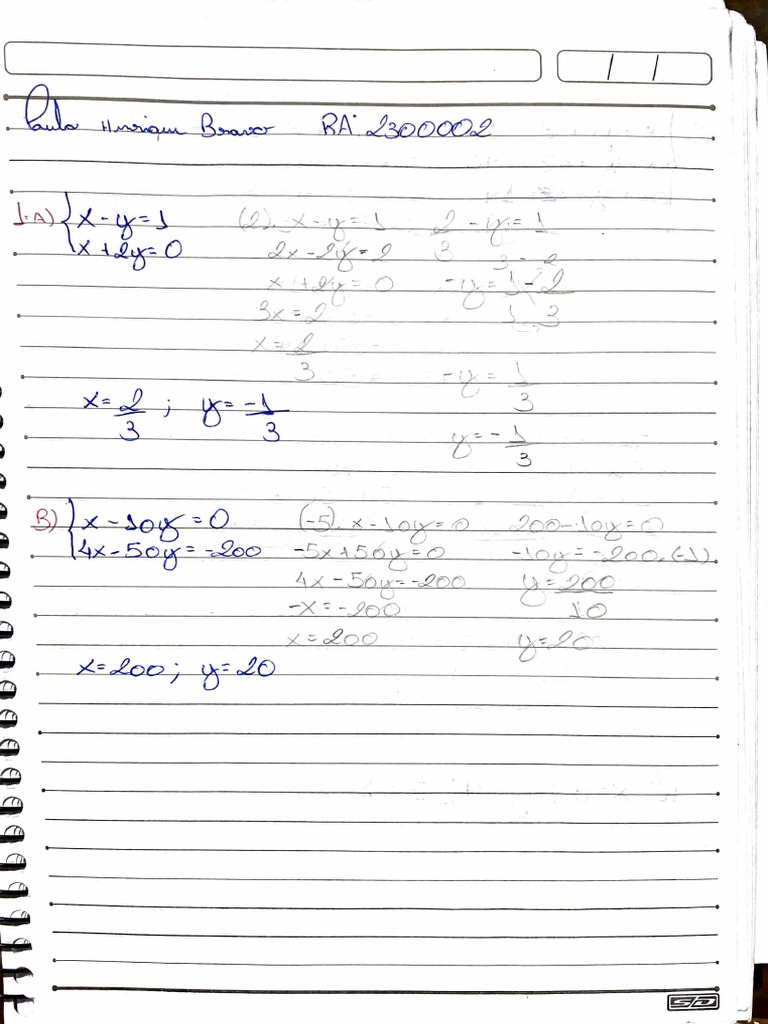 Paulo Henrique Bravo RA: 2300002
1-A) { x - y = 1
x + 2y = 0
x = 2/3 ; y = -1/3
(2). x - y = 1
2x - 2y = 2
x + 2y = 0
3x = 2
x = 2/3
2/3 - y = 1
3 - 2
-y = 1/1 - 2/3
-y = 1/3
y = -1/3
B) { x - 10y = 0
4x - 50y = -200
x = 200 ; y = 20
(-5). x - 10y = 0
-5x + 50y = 0
4x - 50y = -200
-x = -200
x = 200
200 - 10y = 0
-10y = -200.(-1)
y = 200/10
y = 20
SD